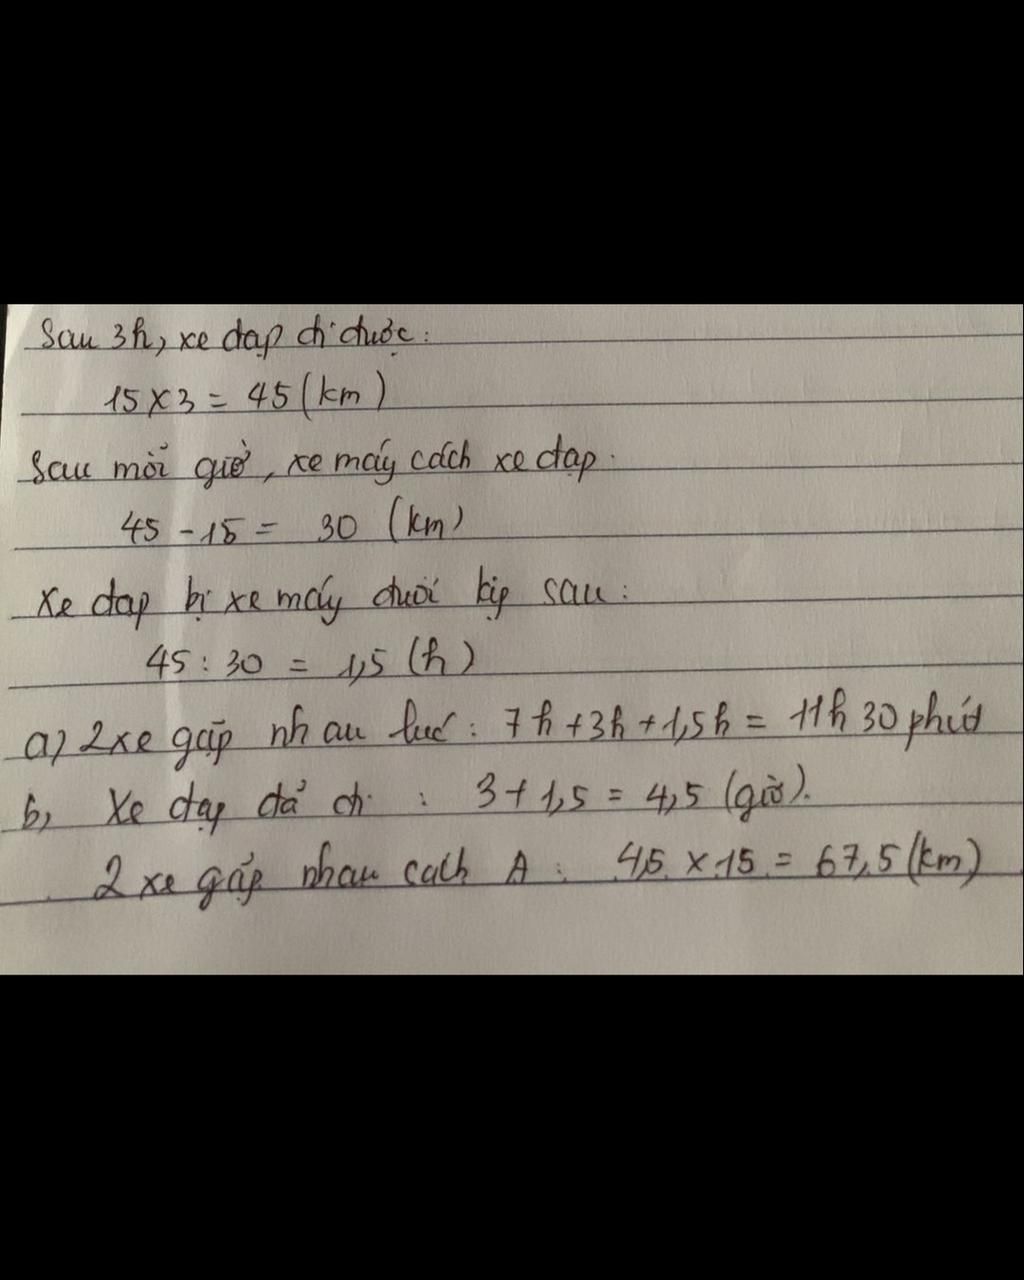 Sau 3h, xe đạp đi được:
15 x 3 = 45 (km)
Sau mỗi giờ, xe máy cách xe đạp.
45 - 15 = 30 (km)
Xe đạp bị xe máy đuổi kịp sau:
45 : 30 = 1,5 (h)
a) 2 xe gặp nhau lúc: 7h + 3h + 1,5h = 11h 30 phút
b, Xe đạp đã đi : 3 + 1,5 = 4,5 (giờ).
2 xe gặp nhau cách A : 4,5 x 15 = 67,5 (km)